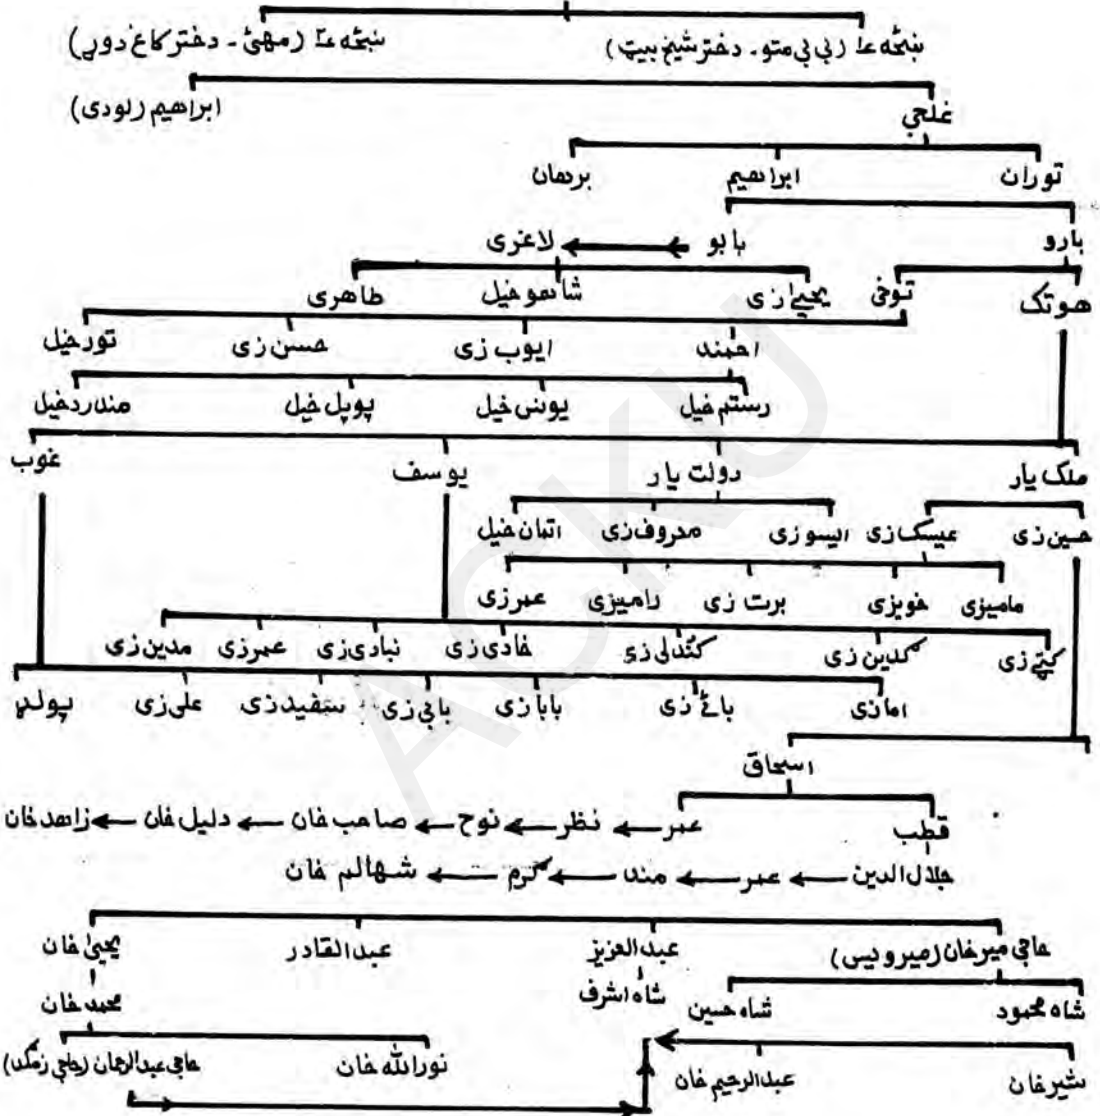 ښځه ۱ (بی بی متو - دختر شیخ بیټ) ښځه ۲ (مهئ - دختر کاغ دورې)
ابراهیم (لودی)
غلجي
توران ابراهیم برهان
بارو بابو لاغری
هوتک توخی یحیٰی زی شاهوخیل طاهری
احمند ایوب زی حسن زی تورخیل
رستم خیل یونس خیل پوپل خیل مندردخیل
ملک یار دولت یار یوسف غوب
حسین زی عیسک زی الیسوزی معروف زی اتمان خیل
مامیزی خویزی برت زی رامیزی عمرزی
کټے زی ګدین زی کندلی زی خادی زی نبادی زی عمرزی مدین زی
امازی بائے زی بابازی بابی زی سفیدزی علی زی
اسحاق
قطب عمر ← نظر ← نوح ← صاحب خان ← دلیل خان ← زاهدخان
جلال الدین ← عمر ← مندا ← کرم ← شهالم خان
حاجی میرخان (میرویس) عبدالعزیز عبدالقادر یحییٰ خان
شاه محمود شاه حسین شاه اشرف محمدخان
شیرخان عبدالرحیم خان نورالله خان حاجی عبدالرحمان (حاجی زمکه)
ACKU